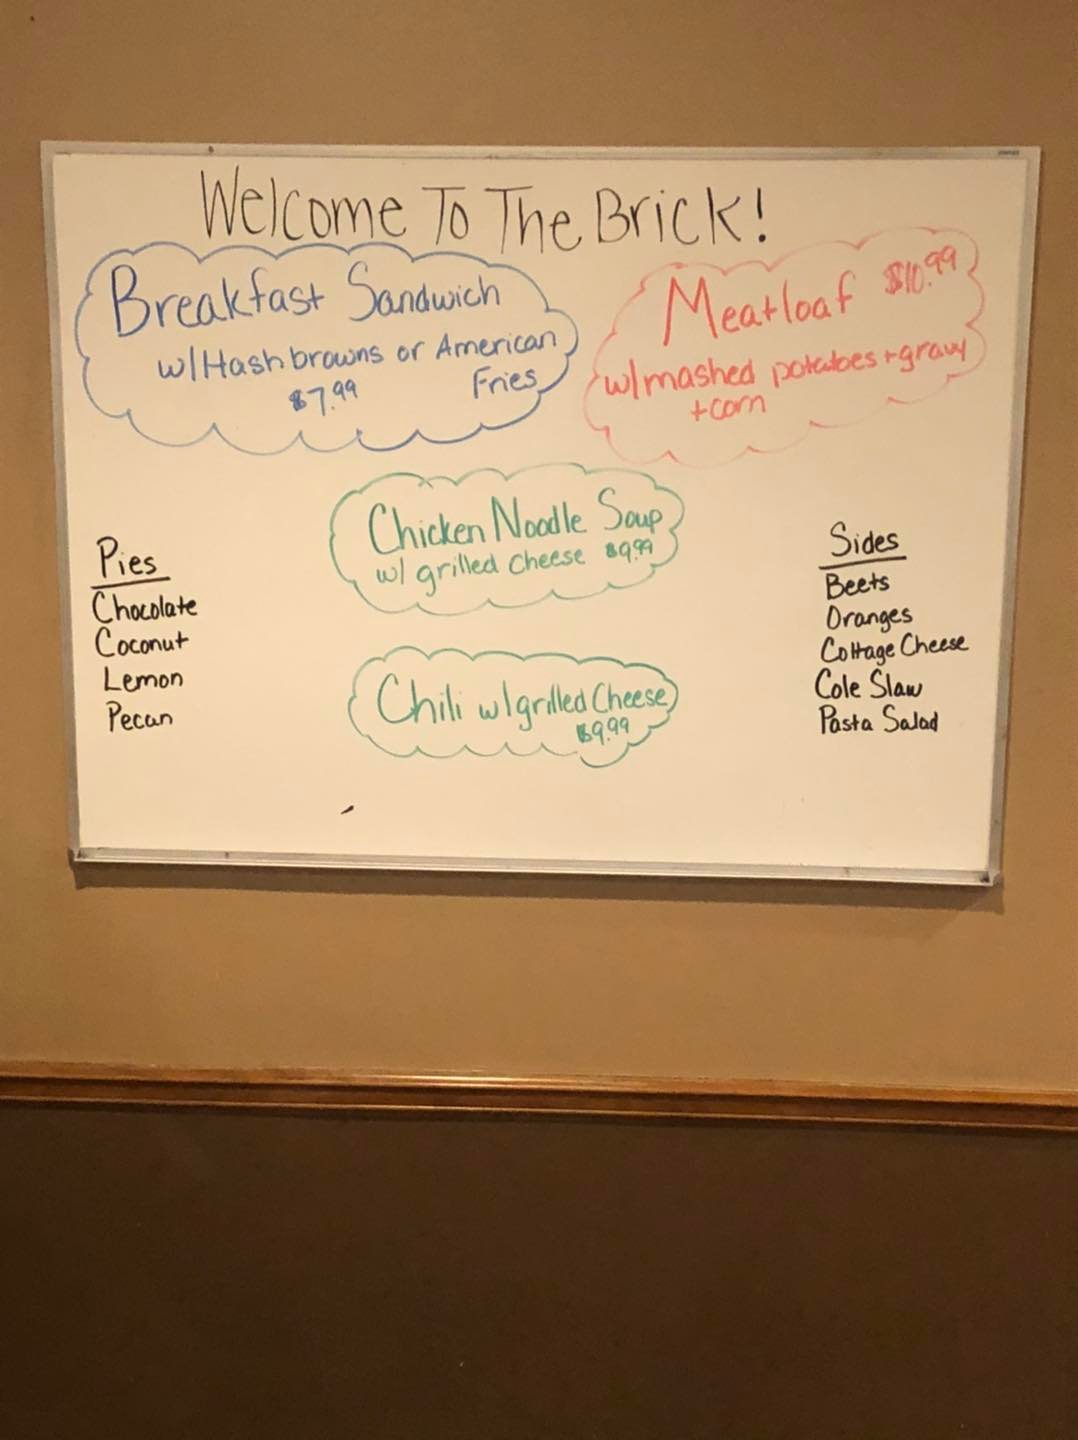 Welcome To The Brick!
Breakfast Sandwich
w/Hashbrowns or American
Fries
$7.99
Meatloaf $10.99
w/mashed potatoes+gravy
+corn
Chicken Noodle Soup
w/ grilled cheese $9.99
Chili w/grilled Cheese
$9.99
Pies
Chocolate
Coconut
Lemon
Pecan
Sides
Beets
Oranges
Cottage Cheese
Cole Slaw
Pasta Salad